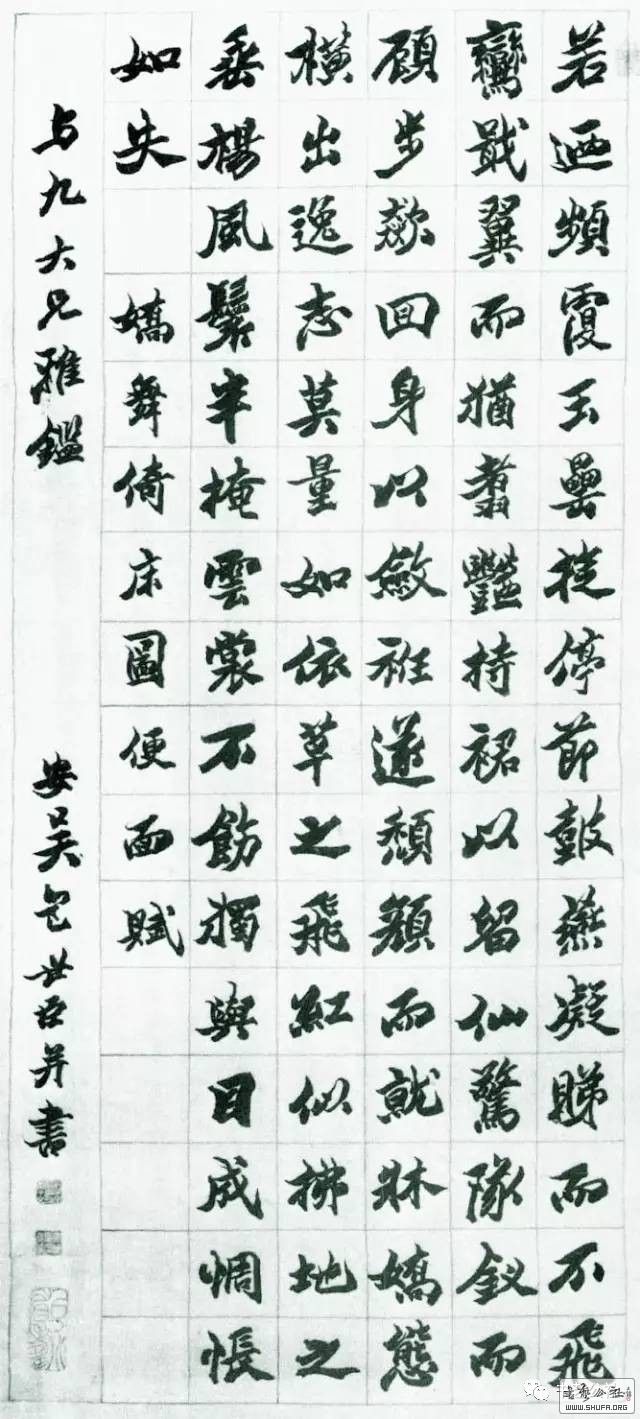 若迺頻覆玉罍旋停節鼓燕凝睇而不飛
鸞戢翼而猶翥豔持裙以留仙驚隊釵而
顧步欻回身以斂袵遂頹顏而就牀嬌態
橫出逸志莫量如依草之飛紅似拂地之
垂楊風鬟半掩雲裳不飭獨與目成惆悵
如失 嬌舞倚床圖便面賦
与九大兄雅鑑 安吳包世臣并書
WWW.SHUFA.ORG